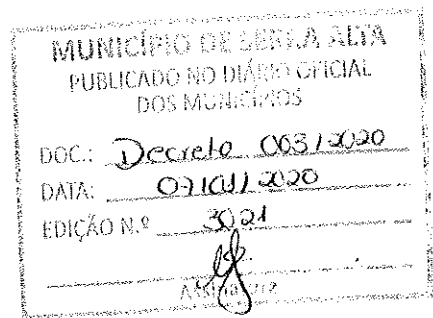 MUNICÍPIO DE SERRA ALTA
PUBLICADO NO DIÁRIO OFICIAL
DOS MUNICÍPIOS
DOC.: Decreto 003/2020
DATA: 07/01/2020
EDIÇÃO N.º 3021
Assinatura